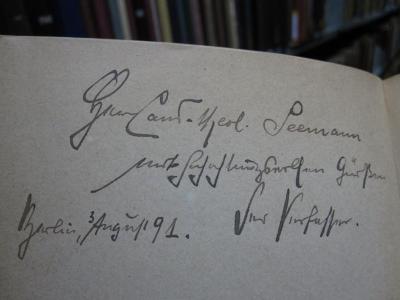 Herrn Cand. theol. Seemann
mit hochachtungsvollen Grüßen
Berlin, 3 August 91. Der Verfasser.